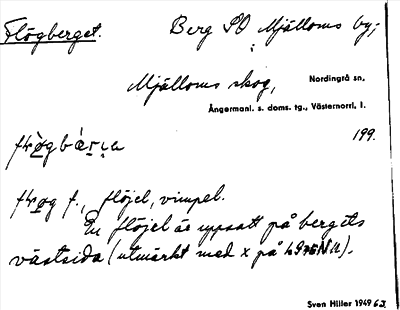 Flögberget. Berg SO Mjälloms by,
Mjälloms skog, Nordingrå sn,
Ångermanl. s. doms. tg., Västernorrl. l.
199.
f., flöjel, vimpel.
En flöjel är uppsatt på bergets
västsida (utmärkt med x på
Sven Hiller 1949